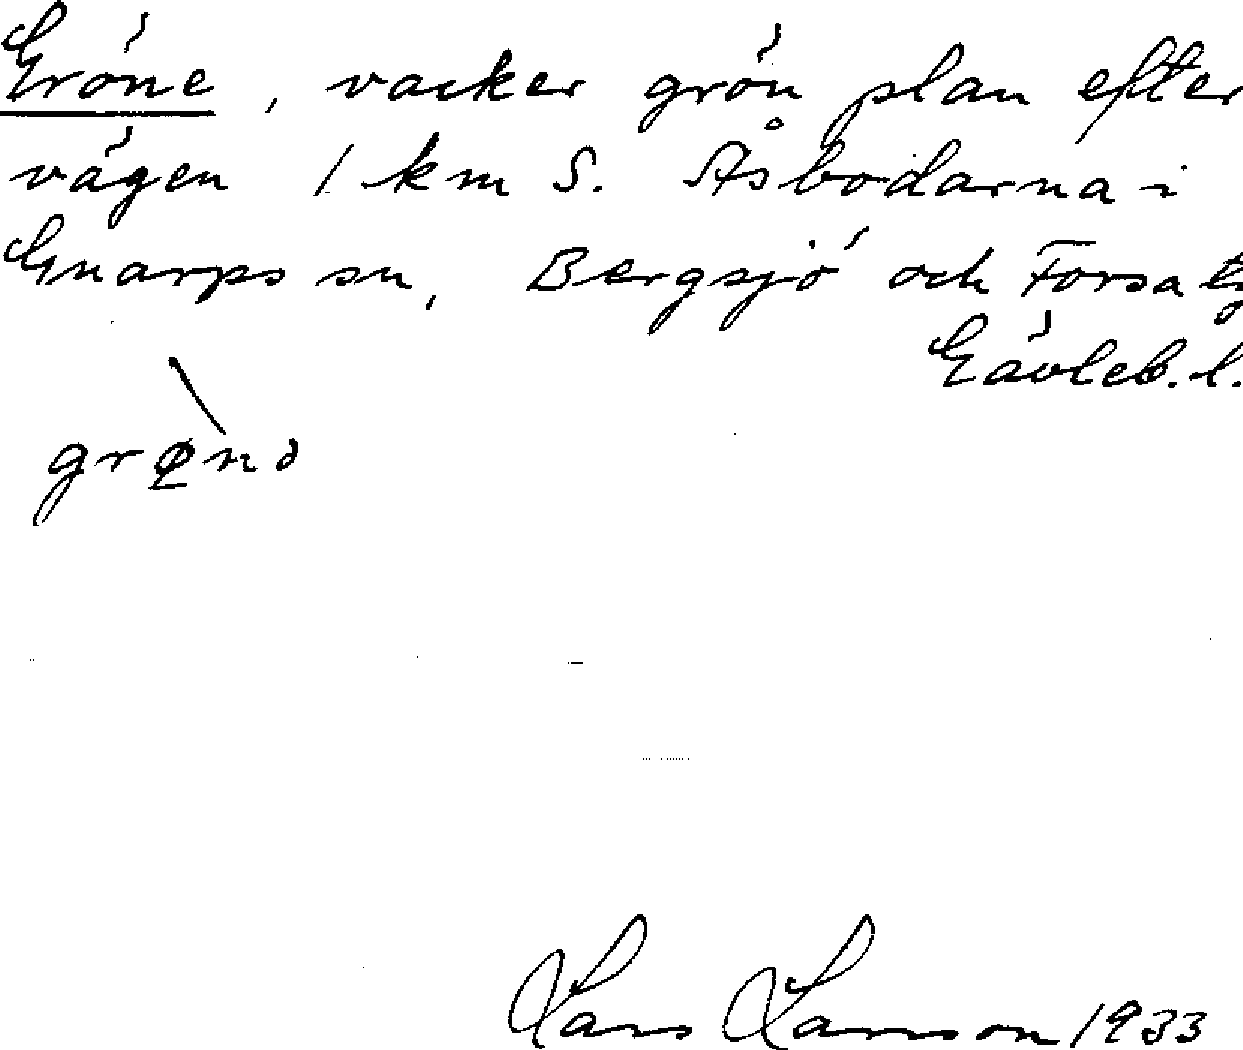 Gröne, vacker grön plan efter
vägen 1 km S. Åsbodarna i
Gnarps sn, Bergsjö och Forsa tg
Gävleb. l.
Lars Larsson 1933